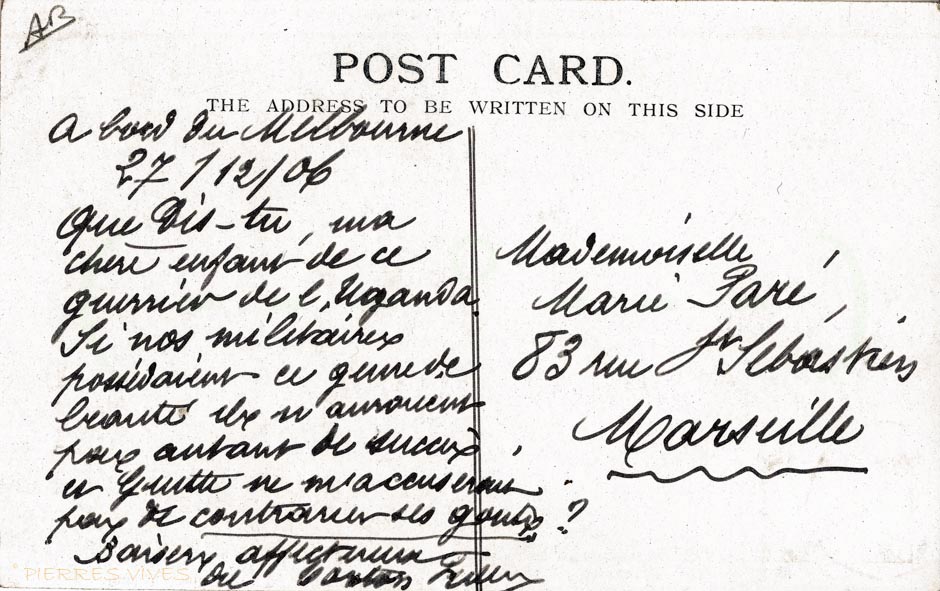 AB
POST CARD.
THE ADDRESS TO BE WRITTEN ON THIS SIDE
A bord du Melbourne
27/12/06
Que Dis-tu, ma
chère enfant de ce
guerrier de l'Uganda.
Si nos militaires
possédaient ce genre de
beauté ils n'auraient
pas autant de succès,
et ne m'accuserait
pas de contrarier ses goûts ?
Baisers affectueux
du
Mademoiselle
Marie Paré,
83 rue St Sébastien,
Marseille
PIERRES VIVES